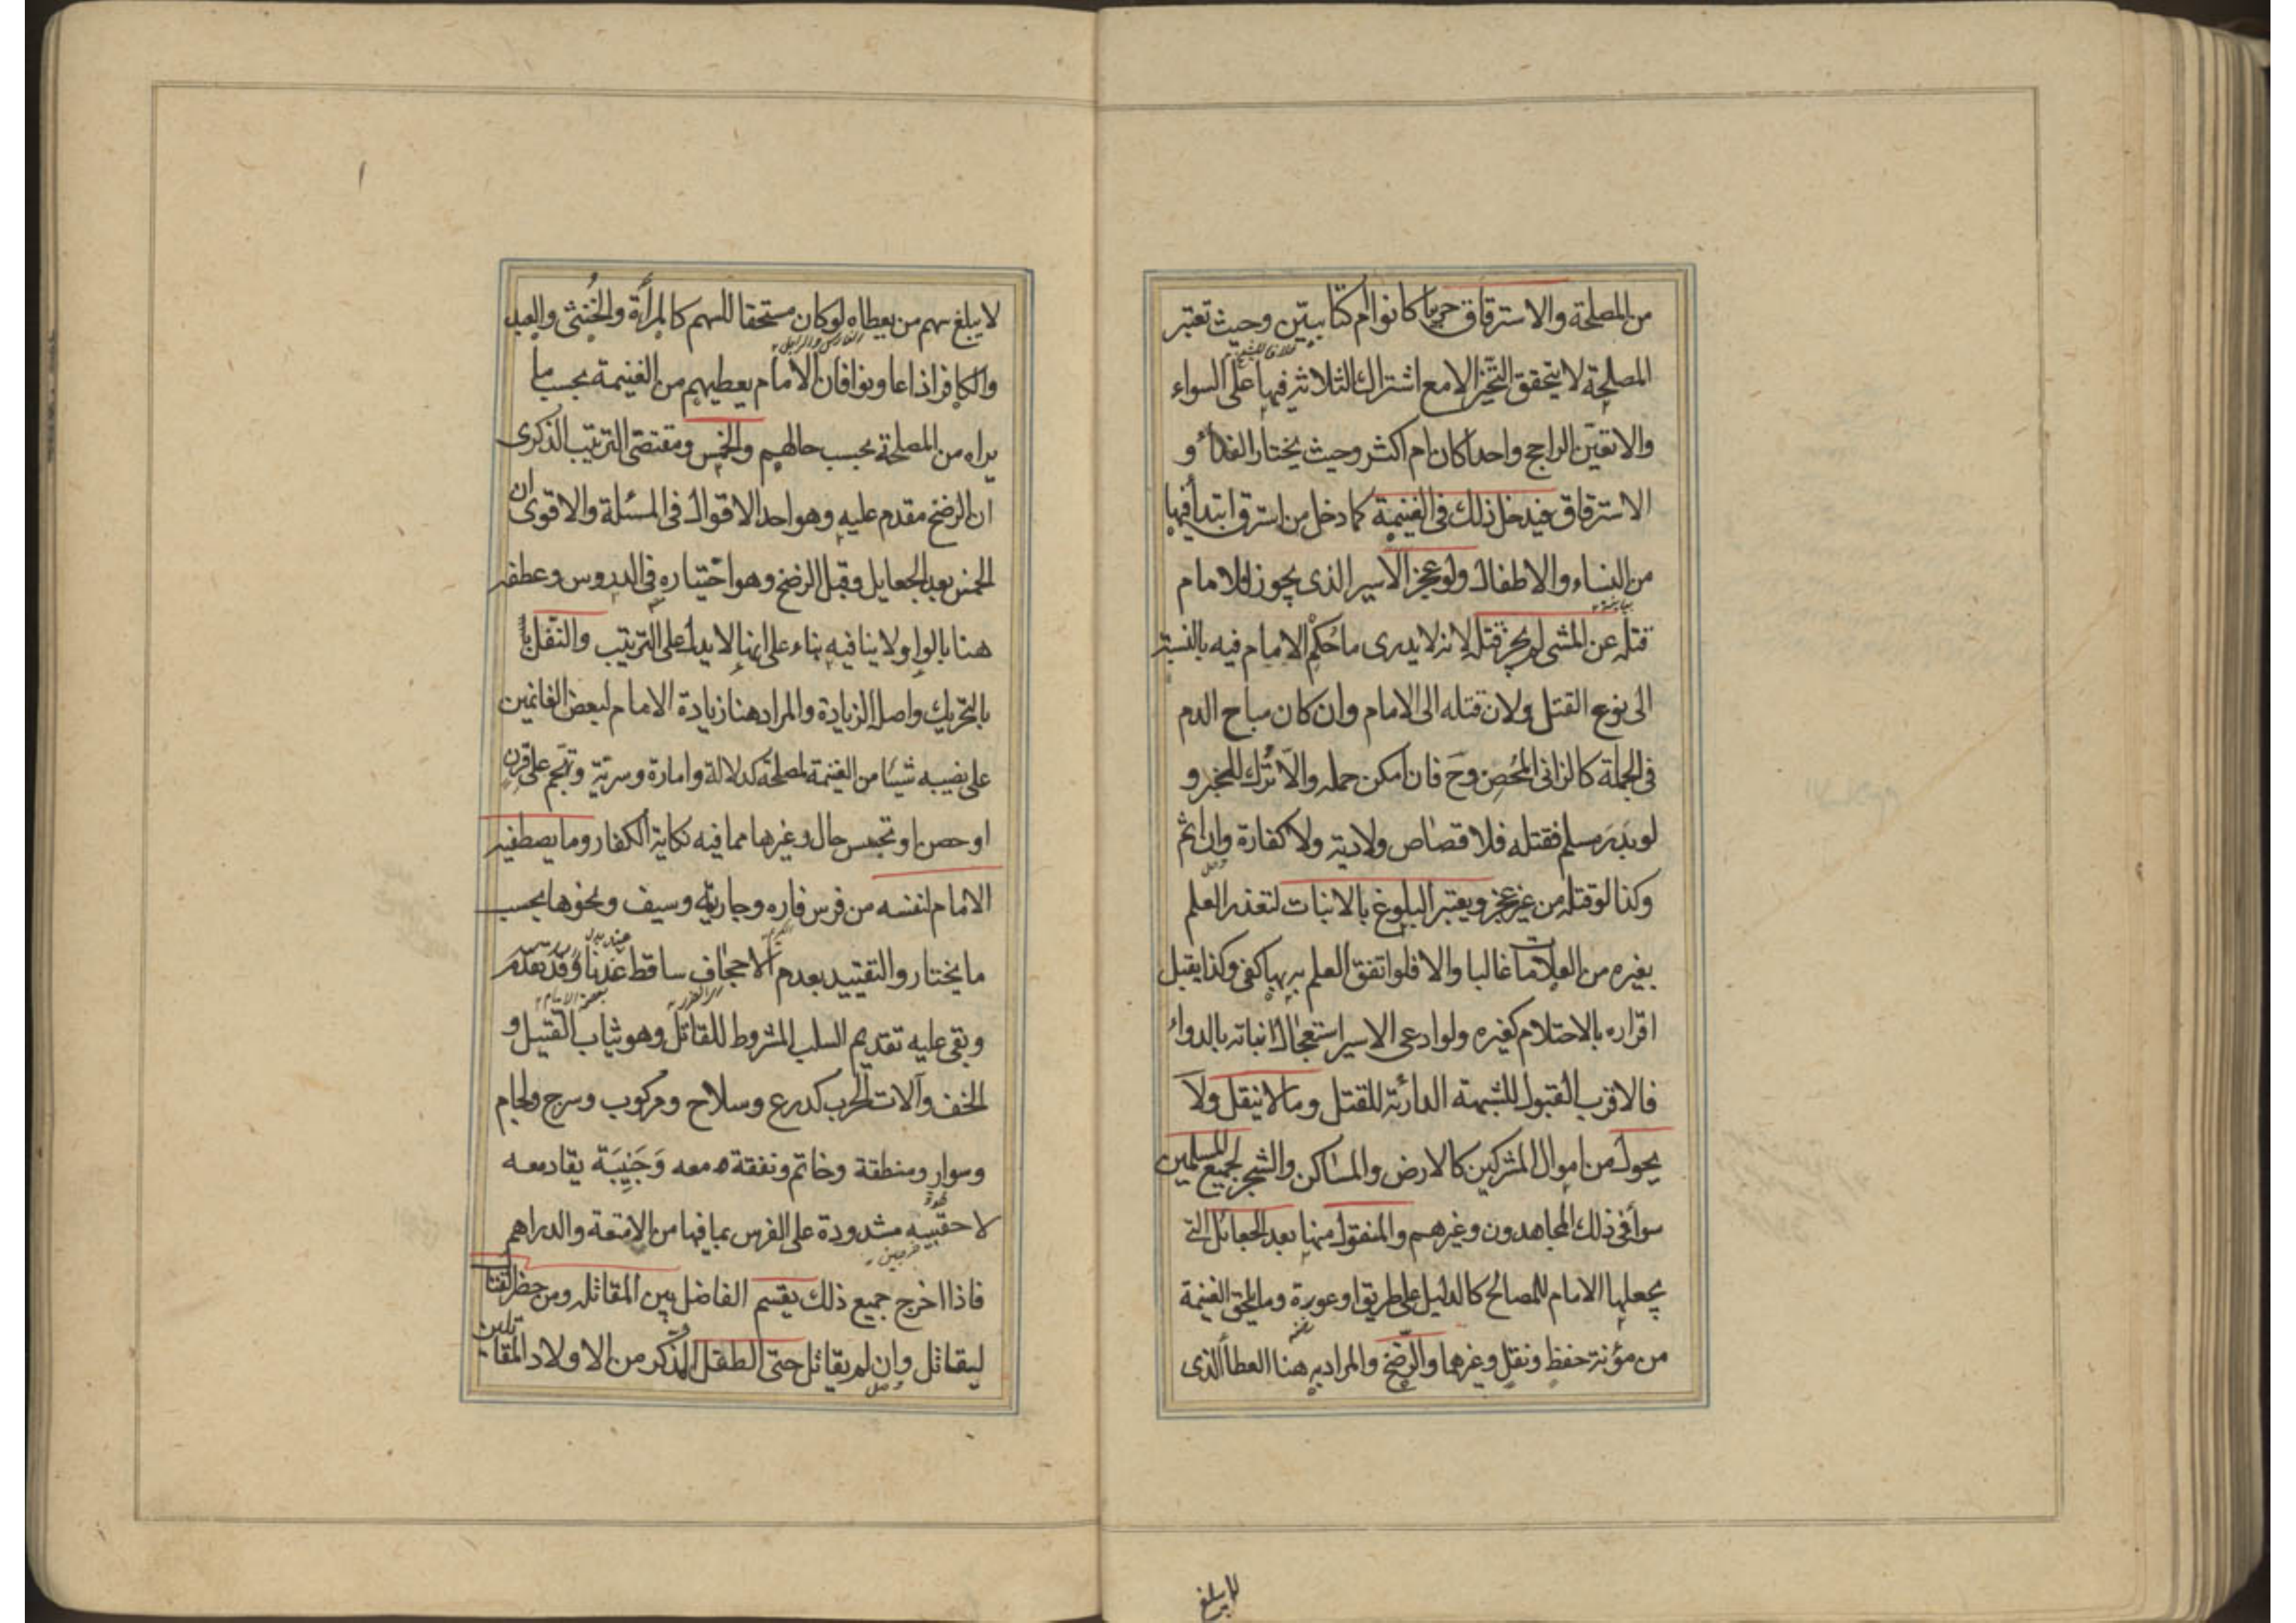 من المصلحة والاسترقاق حربيا كانوا ام كتابيين وحيث تعتبر
خلافا للشيخ
المصلحة لا يتحقق التخير الا مع اشتراك الثلاثة فيها على السواء
والا تعين الراجح واحدا كان ام اكثر وحيث يختار الفداء و
الاسترقاق فيدخل ذلك فى الغنيمة كما دخل من استرق ابتدأ فيها
من النساء والاطفال ولو عجز الاسير الذى يجوز للامام
قتله عن المشى لم يجز قتله لانه لا يدرى ما حُكم الامام فيه بالنسبة
الى نوع القتل ولان قتله الى الامام وان كان مباح الدم
فى الجملة كالزانى المُحصِن وحَ فان امكن حمله والا تُرك للخبر و
لو بَدَرَ مسلم فقتله فلا قصاص ولا دية ولا كفارة وان اثم
وصل
وكذا لو قتله من غير عجز ويعتبر البلوغ بالانبات لتعذر العلم
بغيره من العلامات غالبا والا فلو اتفق العلم به بها كفى وكذا يقبل
اقراره بالاحتلام كغيره ولو ادعى الاسير استعجال انباته بالدواء
فالاقرب القبول للشبهة الدارئة للقتل وما لا ينقل ولا
يحول من اموال المشركين كالارض والمساكن والشجر لجميع المسلمين
سوأ فى ذلك المجاهدون وغيرهم والمنقول منها بعد الجعائل التى
يجعلها الامام للمصالح كالدليل على طريق او عورة وما يلحق الغنيمة
من مؤنة حفظ ونقل وغيرهما والرضخ والمراد به هنا العطأ الذى
لا يبلغ
لا يبلغ سهم من يعطاه لو كان مستحقا للسهم كالمرأة والخُنثى والعبد
الفارس والراجل
والكافر اذا عاونوا فان الامام يعطيهم من الغنيمة بحسب ما
يراه من المصلحة بحسب حالهم والخمس ومقتضى الترتيب الذكرى
ان الرضخ مقدم عليه وهو احد الاقوال فى المسئلة والاقوى ان
الخمس بعد الجعايل وقبل الرضخ وهو اختياره فى الدروس وعطفه
هنا بالواو ولا ينافيه بناء على انها لا يدل على الترتيب والنَفَل
بالتحريك واصله الزيادة والمراد هنا زيادة الامام لبعض الغانمين
على نصيبه شيئا من الغنيمة لمصلحة كدلالة وامارة وسرية وتهجم على قرن
او حصن او تجسس حال وغيرها مما فيه نكاية الكفار وما يصطفيه
الامام لنفسه من فرس فاره وجارية وسيف ونحوها بحسب
ما يختار والتقييد بعدم الاجحاف ساقط عندنا وقد تقدم
وبقى عليه تقديم السلب المشروط للقاتل وهو ثياب القتيل و
الخف وآلات الحرب كدرع وسلاح ومركوب وسرج ولجام
وسوار ومنطقة وخاتم ونفقة معه وَجَنِيبَة يقاد معه
لا حقيبة مشدودة على الفرس بما فيها من الامتعة والدراهم
فاذا اخرج جميع ذلك يقسم الفاضل بين المقاتلة ومن حضر القتال
ليقاتل وان لم يقاتل حتى الطفل الذكر من الاولاد المقاتلين
وصل